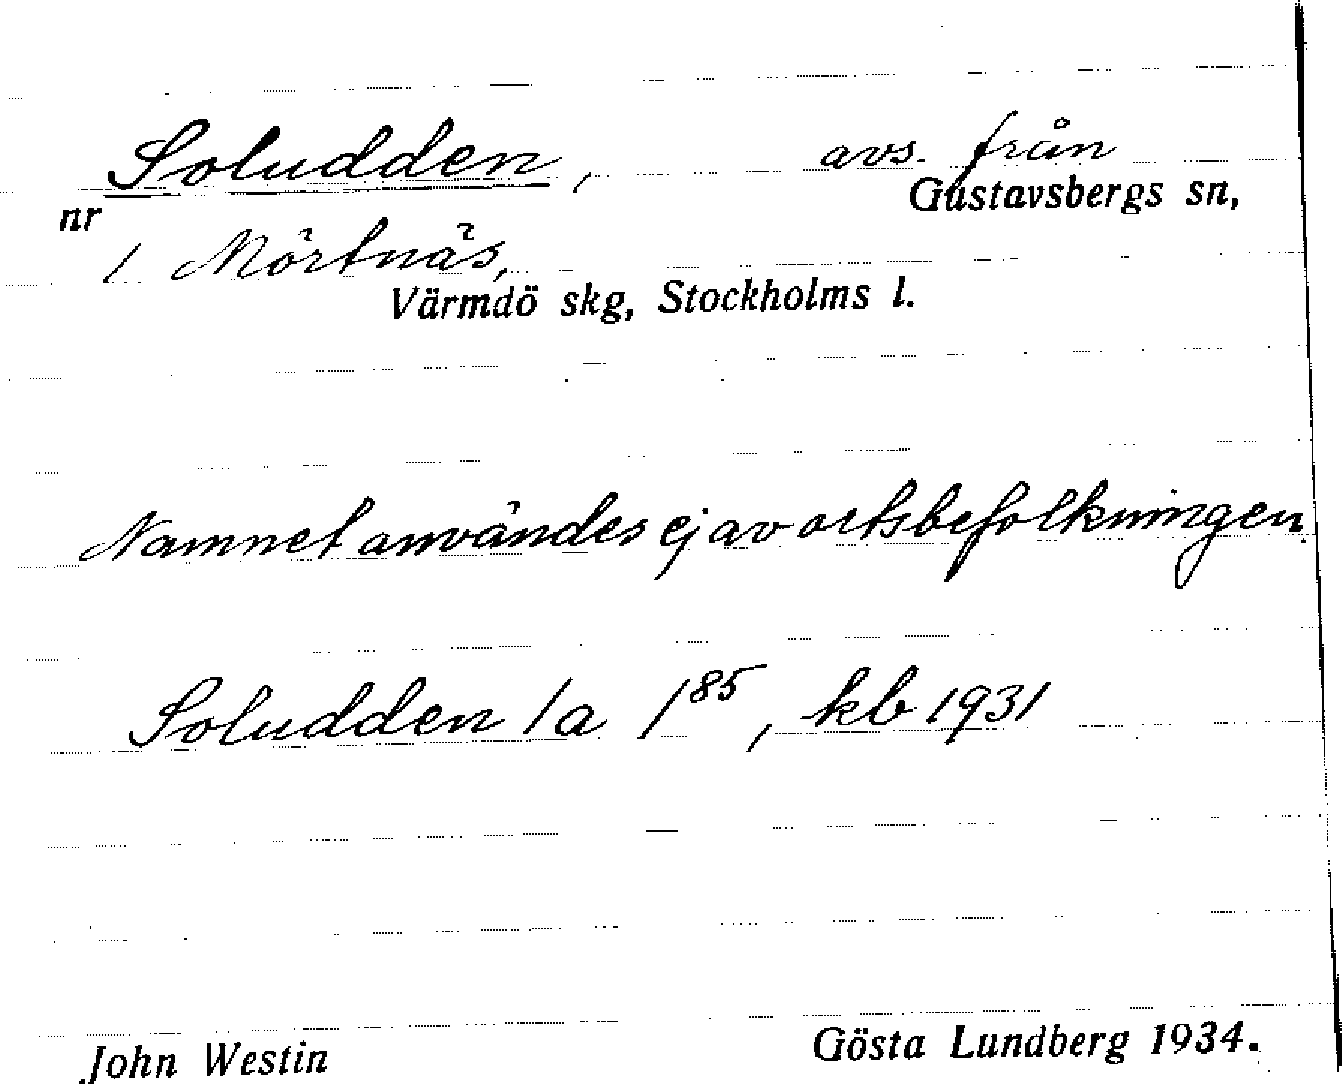 Soludden, avs. från
Gustavsbergs sn,
nr
1 Mörtnäs,
Värmdö skg, Stockholms l.
Namnet användes ej av ortsbefolkningen.
Soludden 1a 1⁸⁵, kb 1931
John Westin Gösta Lundberg 1934.